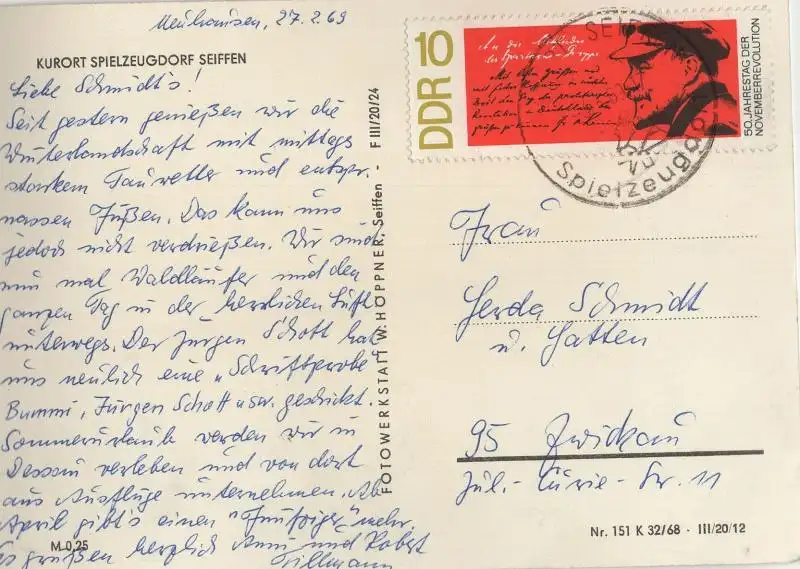 Neuhausen, 27.2.69
KURORT SPIELZEUGDORF SEIFFEN
Liebe Schmidt's!
Seit gestern genießen wir die
Winterlandschaft mit mittags
starkem Tauwetter und entspr.
nassen Füßen. Das kann uns
jedoch nicht verdrießen. Wir sind
nun mal Waldläufer und den
ganzen Tag in der herrlichen Luft
unterwegs. Der Jürgen Schott hat
uns neulich eine "Schriftprobe
Bummi, Jürgen Schott usw. geschickt.
Sommerurlaub werden wir in
Dessau verleben und von dort
aus Ausflüge unternehmen. Ab
April gibt's einen "Fünfziger" mehr.
Es grüßen herzlich Anni und Robert
Tillmann
M 0,25
FOTOWERKSTATT W. HÖPPNER, Seiffen - F III/20/24
DDR 10
An die Mitglieder
der Spartacus-Gruppe
50. JAHRESTAG DER
NOVEMBERREVOLUTION
Spielzeugdo
Frau
Gerda Schmidt
u. Gatten
95 Zwickau
Jul.-Curie-Str. 11
Nr. 151 K 32/68 - III/20/12